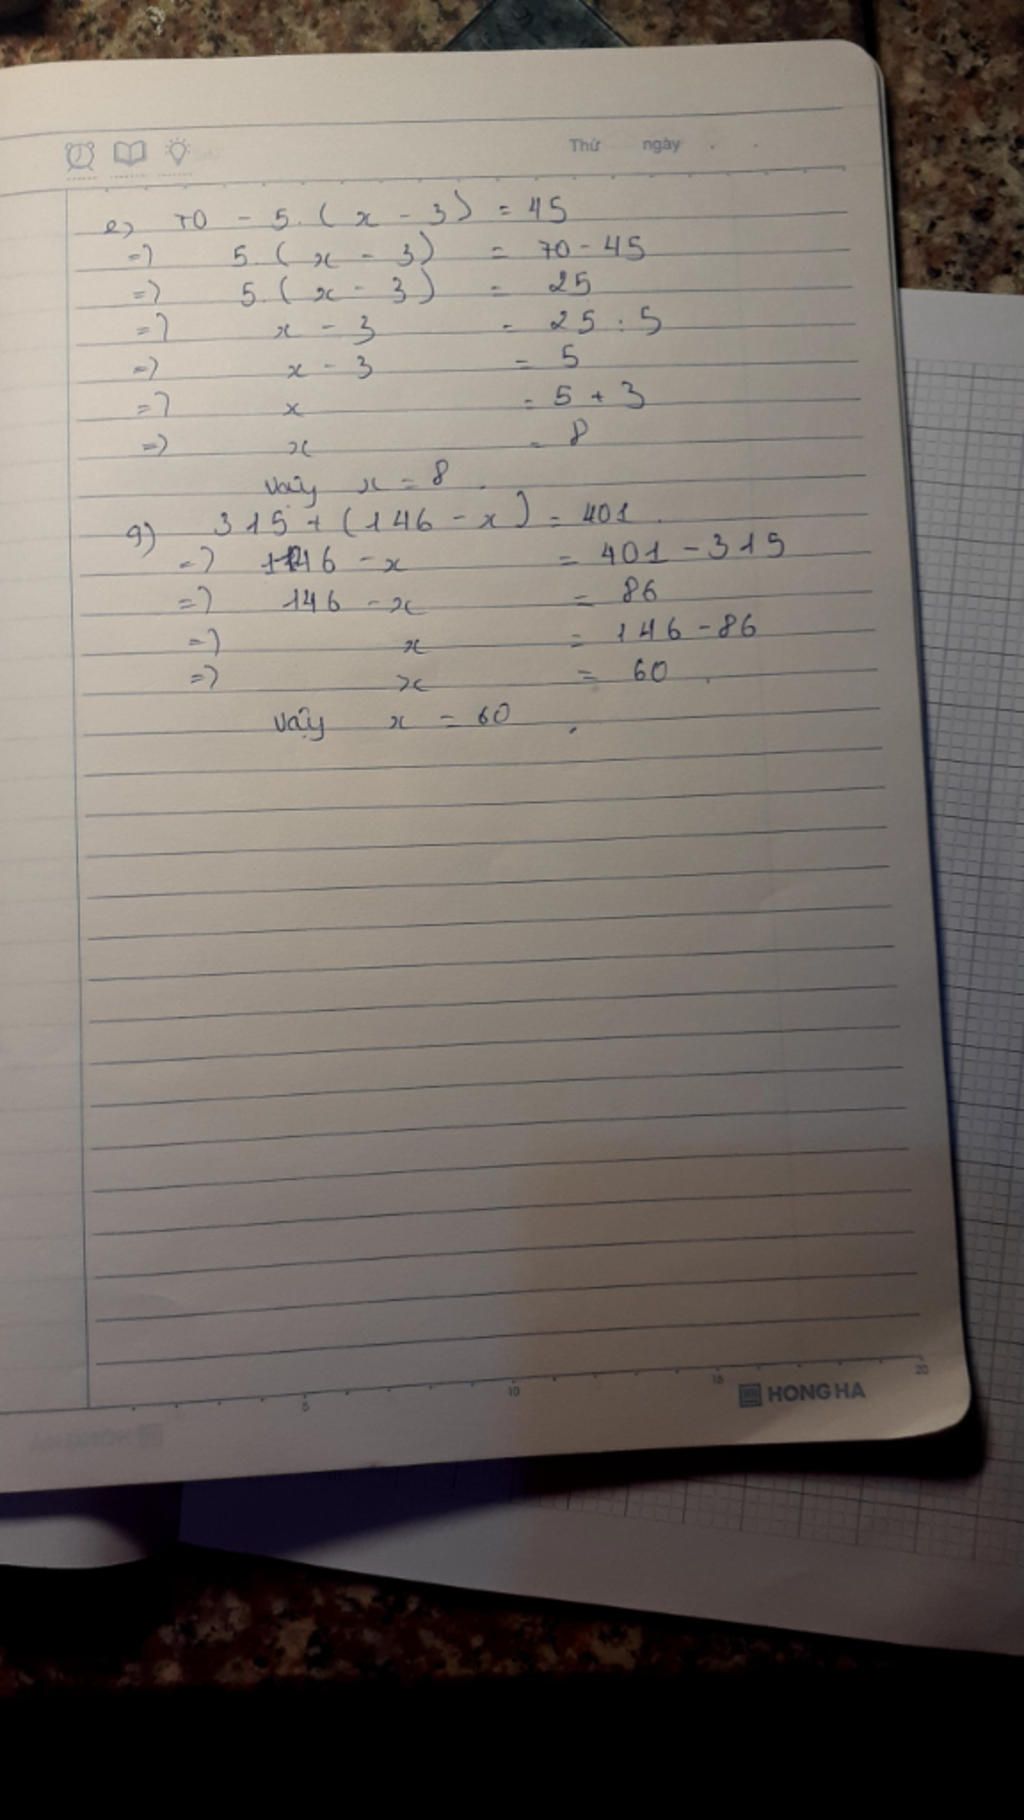 Thứ ngày
e) 70 - 5.(x - 3) = 45
=> 5.(x - 3) = 70 - 45
=> 5.(x - 3) = 25
=> x - 3 = 25 : 5
=> x - 3 = 5
=> x = 5 + 3
=> x = 8
vậy x = 8.
g) 315 + (146 - x) = 401.
=> 146 - x = 401 - 315
=> 146 - x = 86
=> x = 146 - 86
=> x = 60.
vậy x = 60.
5 10 15 20
HONG HA